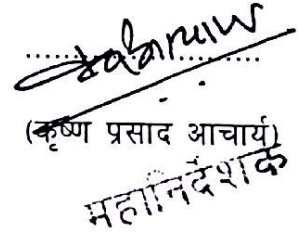 (कृष्ण प्रसाद आचार्य)
महानिर्देशक